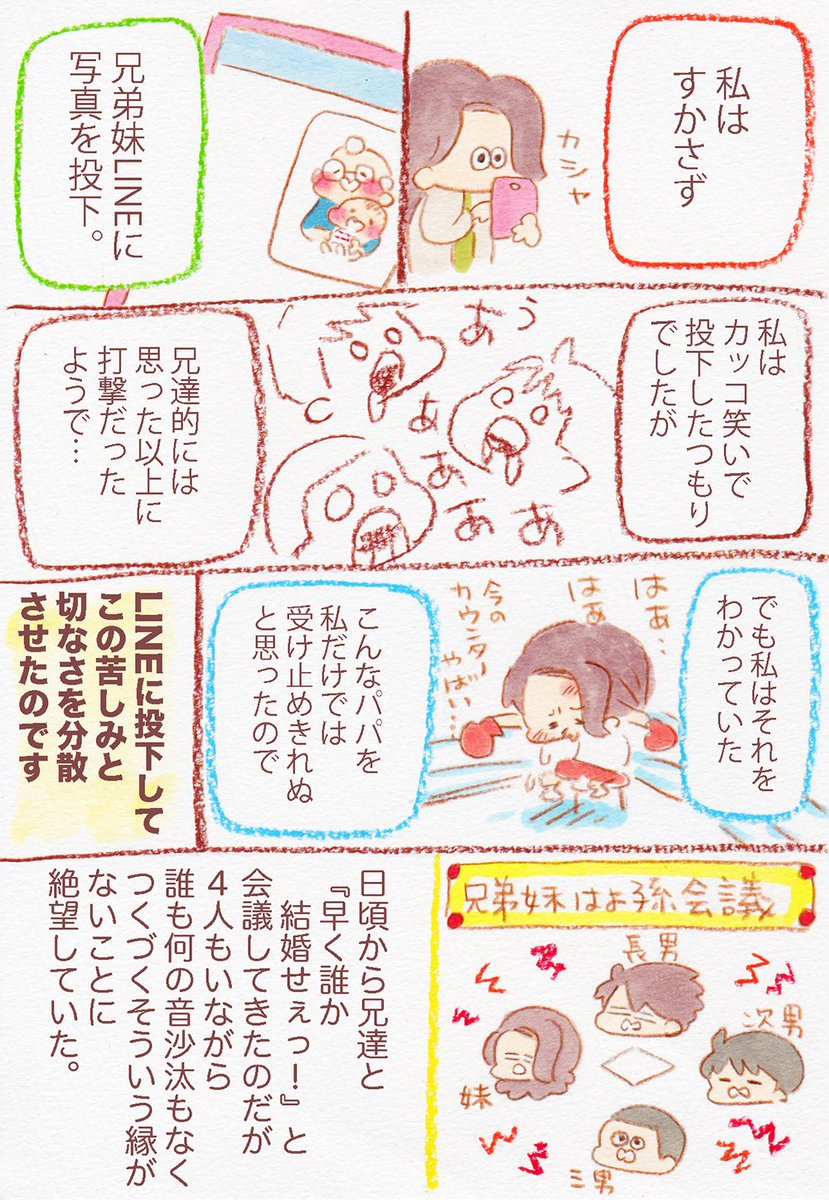 私は
すかさず
カシャ
兄弟妹LINEに
写真を投下。
私は
カッコ笑いで
投下したつもり
でしたが
うあああああ
兄達的には
思った以上に
打撃だった
ようで…
でも私はそれを
わかっていた
はあ…
はあ
今の
カウンター
やばい…
こんなパパを
私だけでは
受け止めきれぬ
と思ったので
LINEに投下して
この苦しみと
切なさを分散
させたのです
兄弟妹はよ孫会議
長男
次男
妹
三男
日頃から兄達と
『早く誰か
結婚せぇっ!』と
会議してきたのだが
4人もいながら
誰も何の音沙汰もなく
つくづくそういう縁が
ないことに
絶望していた。